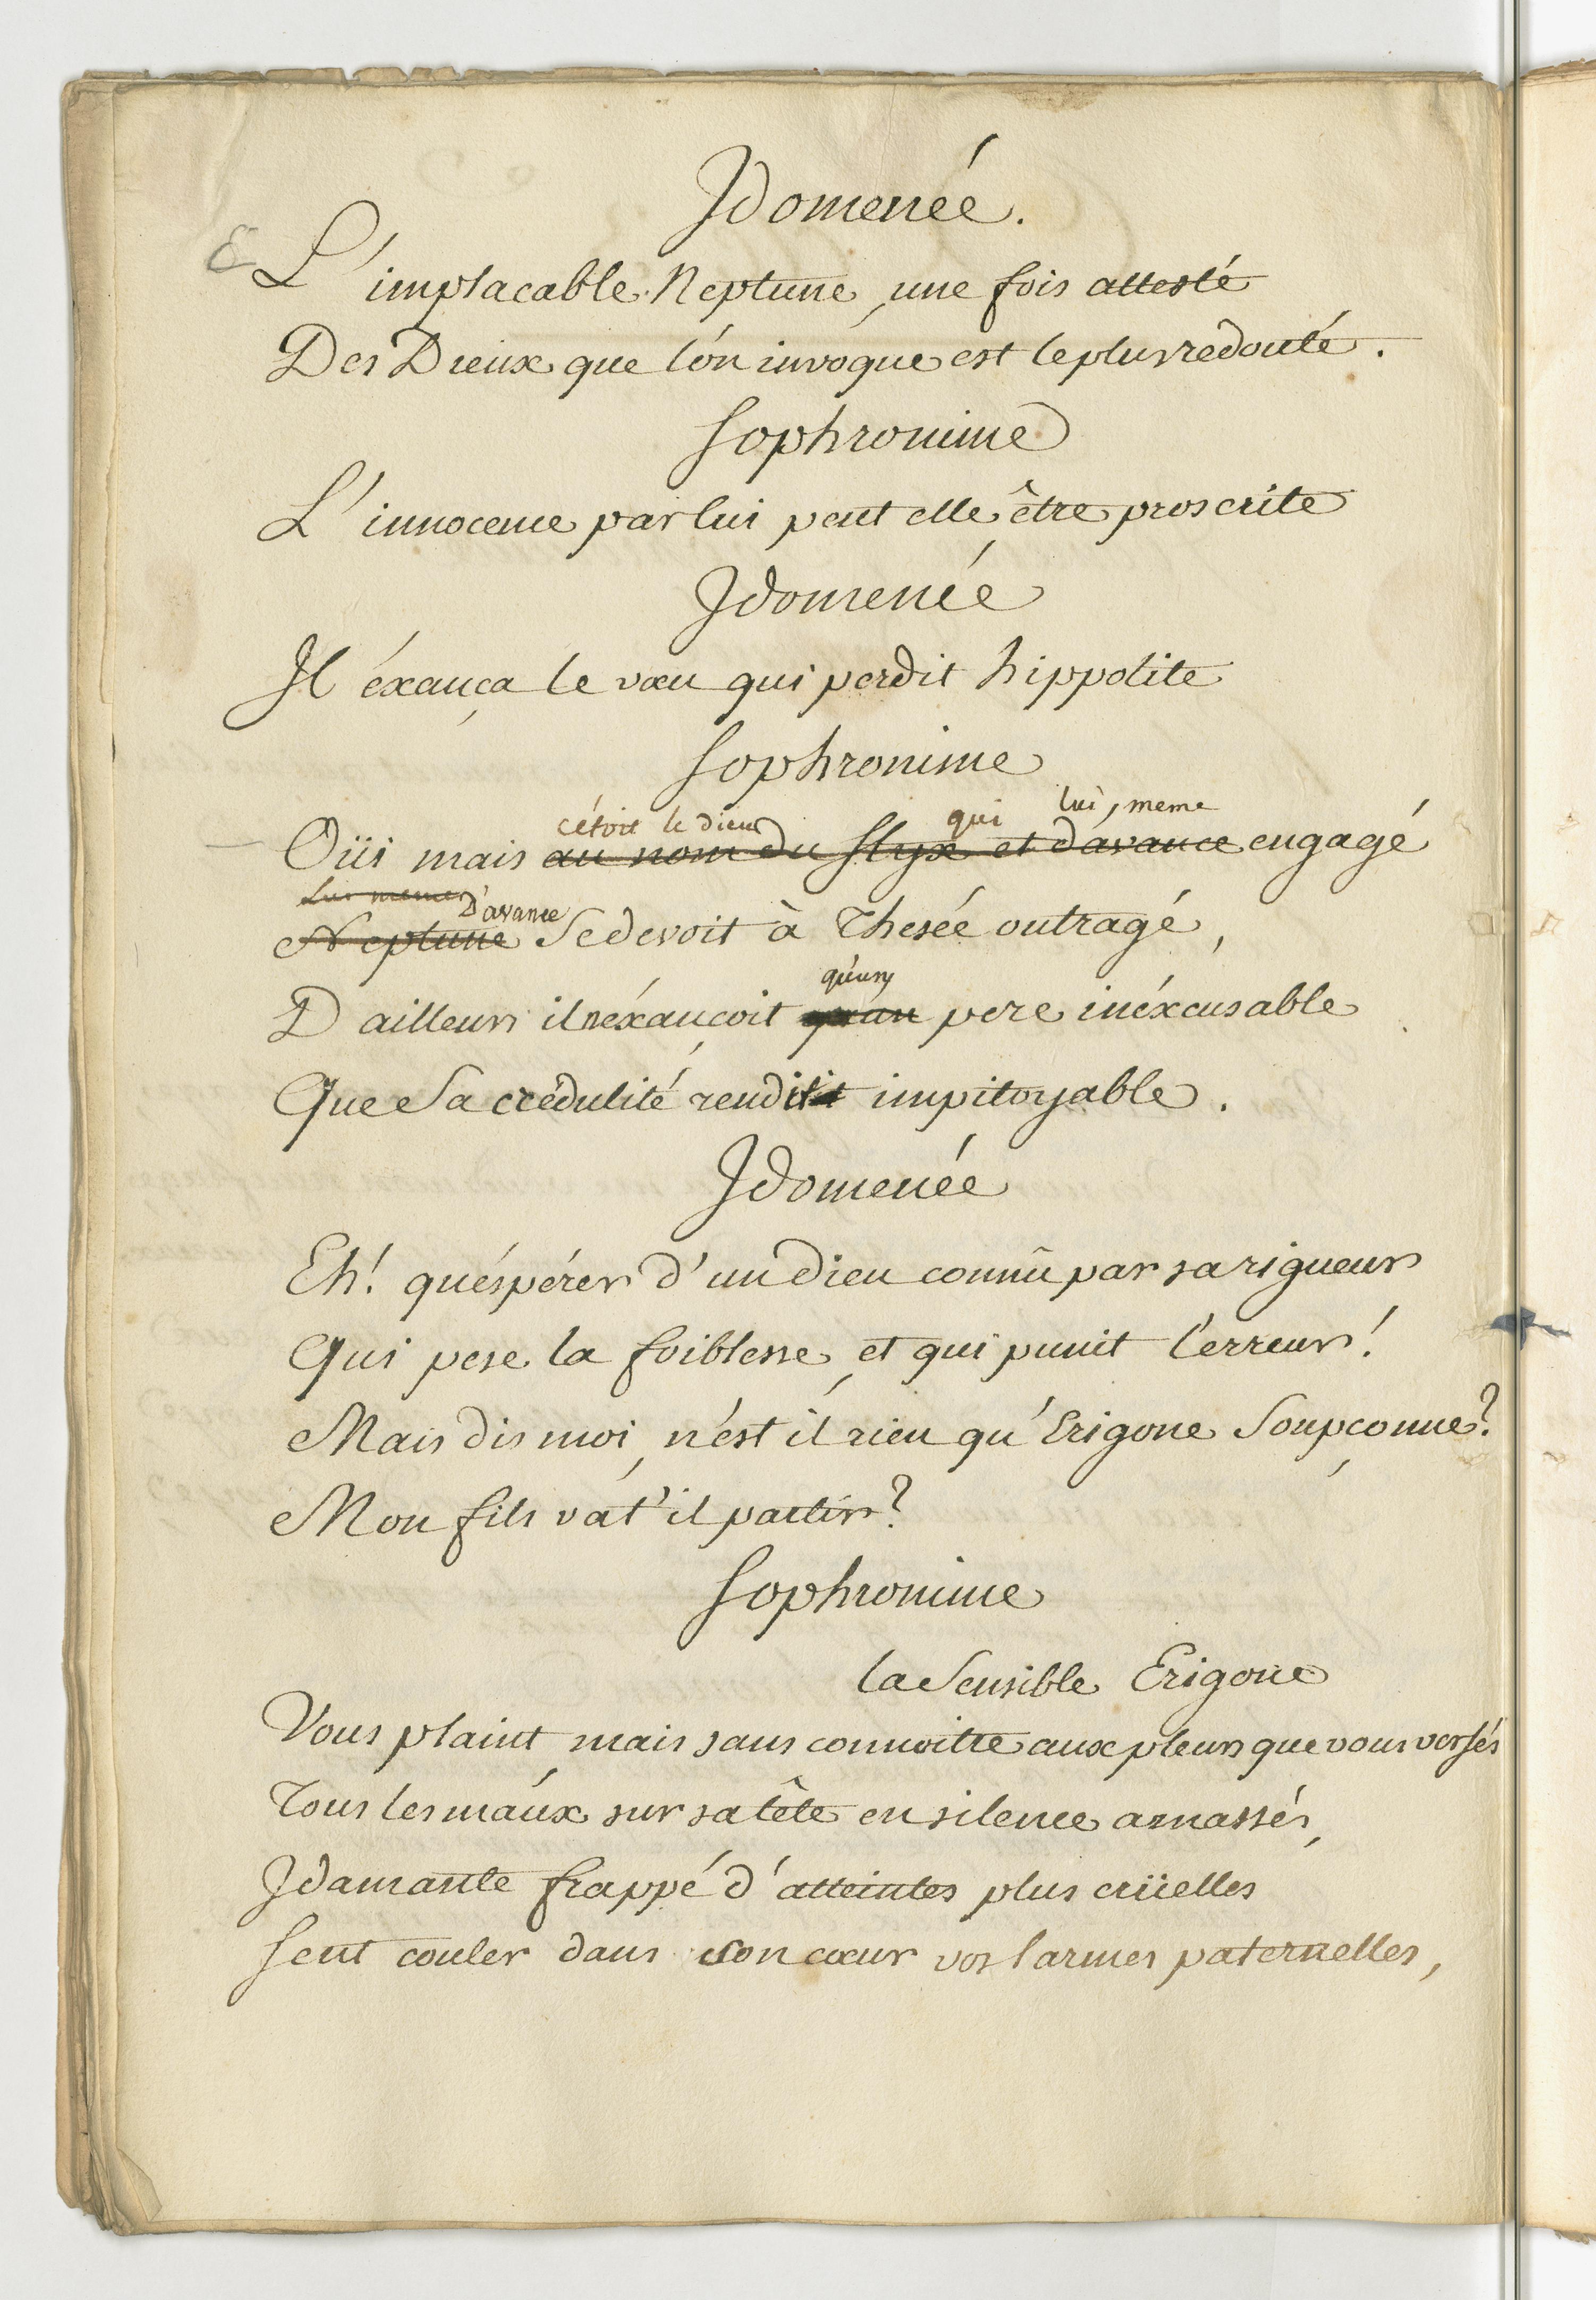 Jdomenée.
& L'implacable Neptune, une fois attesté
Des Dieux que l'ón invóque est le plus redouté.
Sophronime
L'innocence par lui peut elle être proscrite
Jdomenée
Jl éxauça le vœu qui perdit hippolite
Sophronime
c'étoit le dieu qui lui, meme
Oüi mais au nom du Styx et d'avance engagé
Lui meme D'avance
Neptune Se devoit à Thesée outragé,
qu'un
D'ailleurs il n'éxauçoit qu'un pere inéxcusable
Que Sa crédulité rendit impitoyable.
Jdomenée
Eh! qu'éspérer d'un Dieu connû par sa rigueur
Qui pese la foiblesse, et qui punit l'erreur!
Mais dis moi, n'ést il rien qu'Erigone Soupçonne?
Mon fils va t'il partir?
Sophronime
la Sensible Erigone
Vous plaint, mais sans connoitre aux pleurs que vous versés
Tous les máux sur sa tête en silence amassés,
Jdamante frappé d'atteintes plus crüelles
Sent couler dans son cœur vos larmes paternelles,